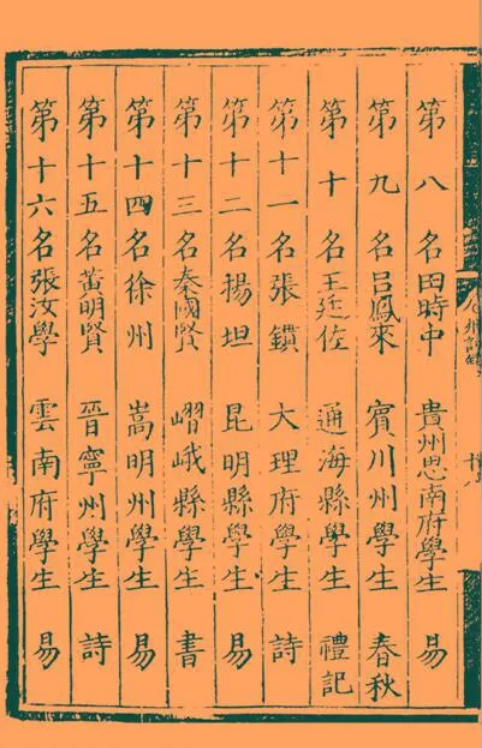 第八名田時中 貴州思南府學生 易
第九名呂鳳來 賓川州學生 春秋
第十名王廷佐 通海縣學生 禮記
第十一名張鐀 大理府學生 詩
第十二名楊坦 昆明縣學生 易
第十三名秦國賢 嶍峨縣學生 書
第十四名徐州 嵩明州學生 易
第十五名黃明賢 晉寧州學生 詩
第十六名張汝學 雲南府學生 易